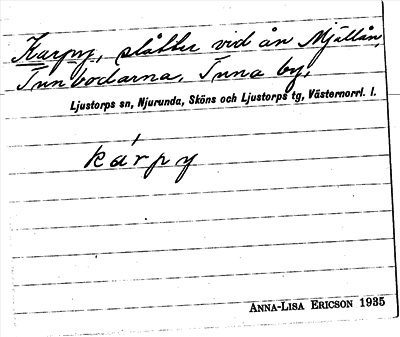 Karpy, slåtter vid ån Mjällån,
Tunbodarna, Tuna by,
Ljustorps sn, Njurunda, Sköns och Ljustorps tg, Västernorrl. l.
kárpy
ANNA-LISA ERICSON 1935